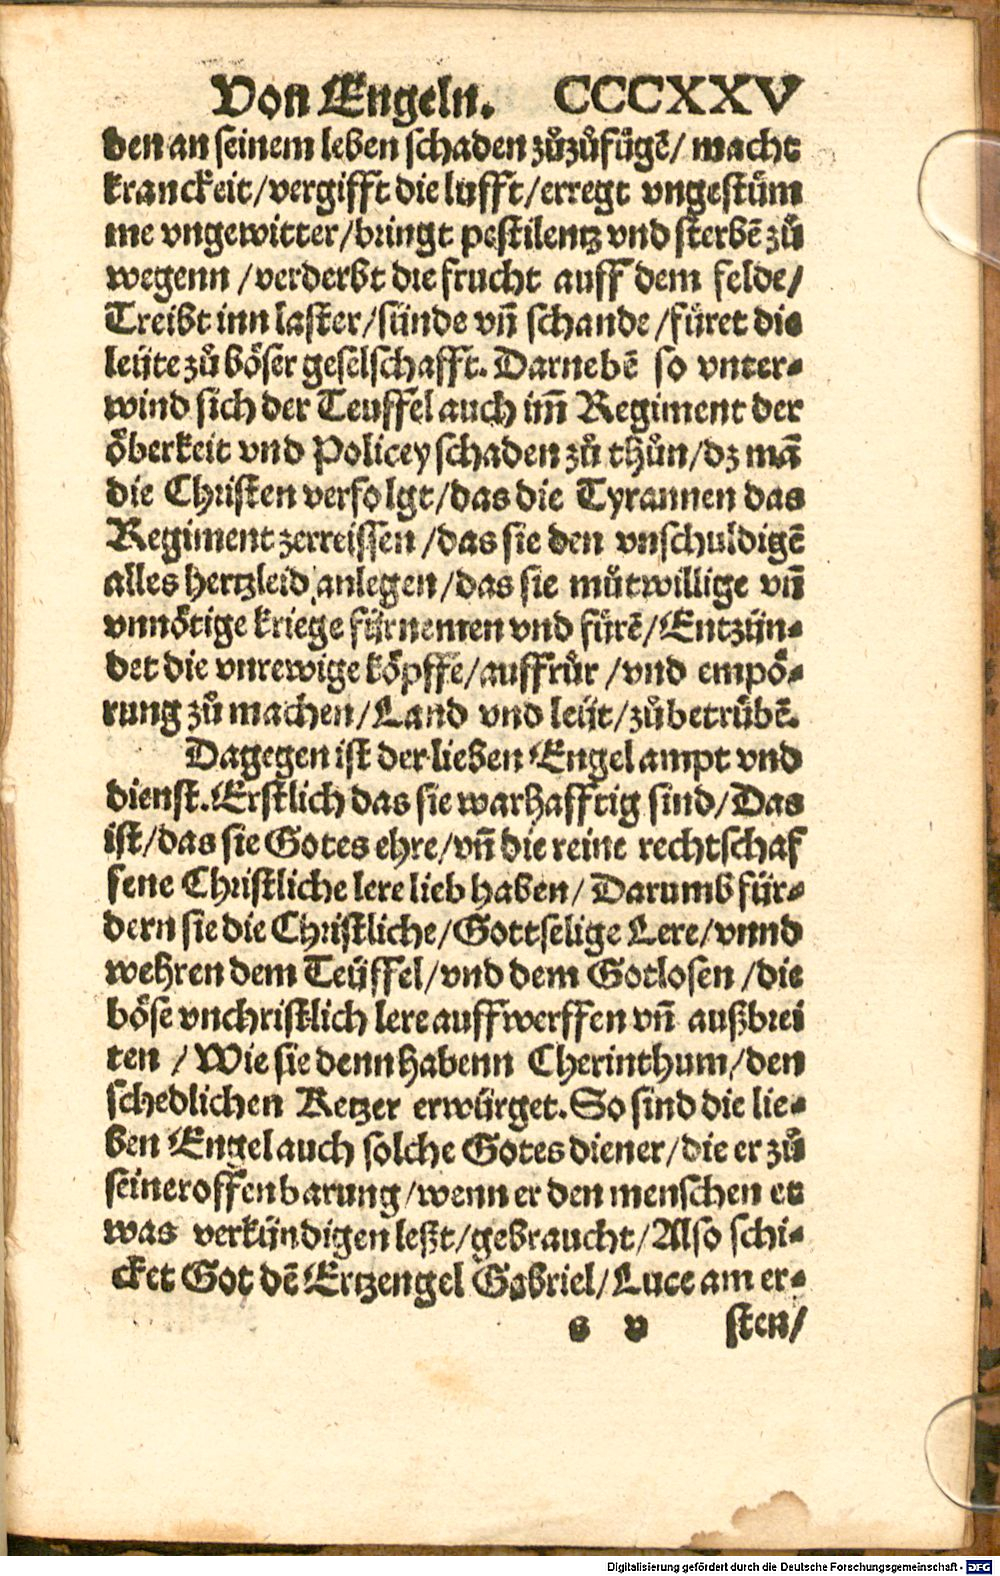 Von Engeln. CCCXXV
den an seinem leben schaden zůzůfügẽ/ macht
kranckeit/vergifft die lufft/erregt vngestüm
me vngewitter/bringt pestilentz vnd sterbẽ zů
wegenn /verderbt die frucht auff dem felde/
Treibt inn laster/sünde vñ schande /füret die
leüte zů böser geselschafft. Darnebẽ so vnter-
wind sich der Teuffel auch im̃ Regiment der
öberkeit vnd Policey schaden zů thůn/dz mã
die Christen verfolgt/das die Tyrannen das
Regiment zerreissen /das sie den vnschuldigẽ
alles hertzleid anlegen/das sie můtwillige vñ
vnnötige kriege fürnemen vnd fürẽ/Entzün-
det die vnrewige köpffe/auffrůr /vnd empö-
rung zů machen/Land vnd leüt/zůbetrübẽ.
Dagegen ist der lieben Engel ampt vnd
dienst. Erstlich das sie warhafftig sind/Das
ist/das sie Gotes ehre/vñ die reine rechtschaf
fene Christliche lere lieb haben/ Darumb für-
dern sie die Christliche/Gottselige Lere/vnnd
wehren dem Teüffel/vnd dem Gotlosen /die
böse vnchristlich lere auffwerffen vñ außbrei
ten /Wie sie denn habenn Cherinthum/den
schedlichen Ketzer erwürget. So sind die lie-
ben Engel auch solche Gotes diener/die er zů
seiner offenbarung/wenn er den menschen et
was verkündigen leßt/gebraucht/Also schi-
cket Got dẽ Ertzengel Gabriel/Luce am er-
s v sten/
Digitalisierung gefördert durch die Deutsche Forschungsgemeinschaft - DFG